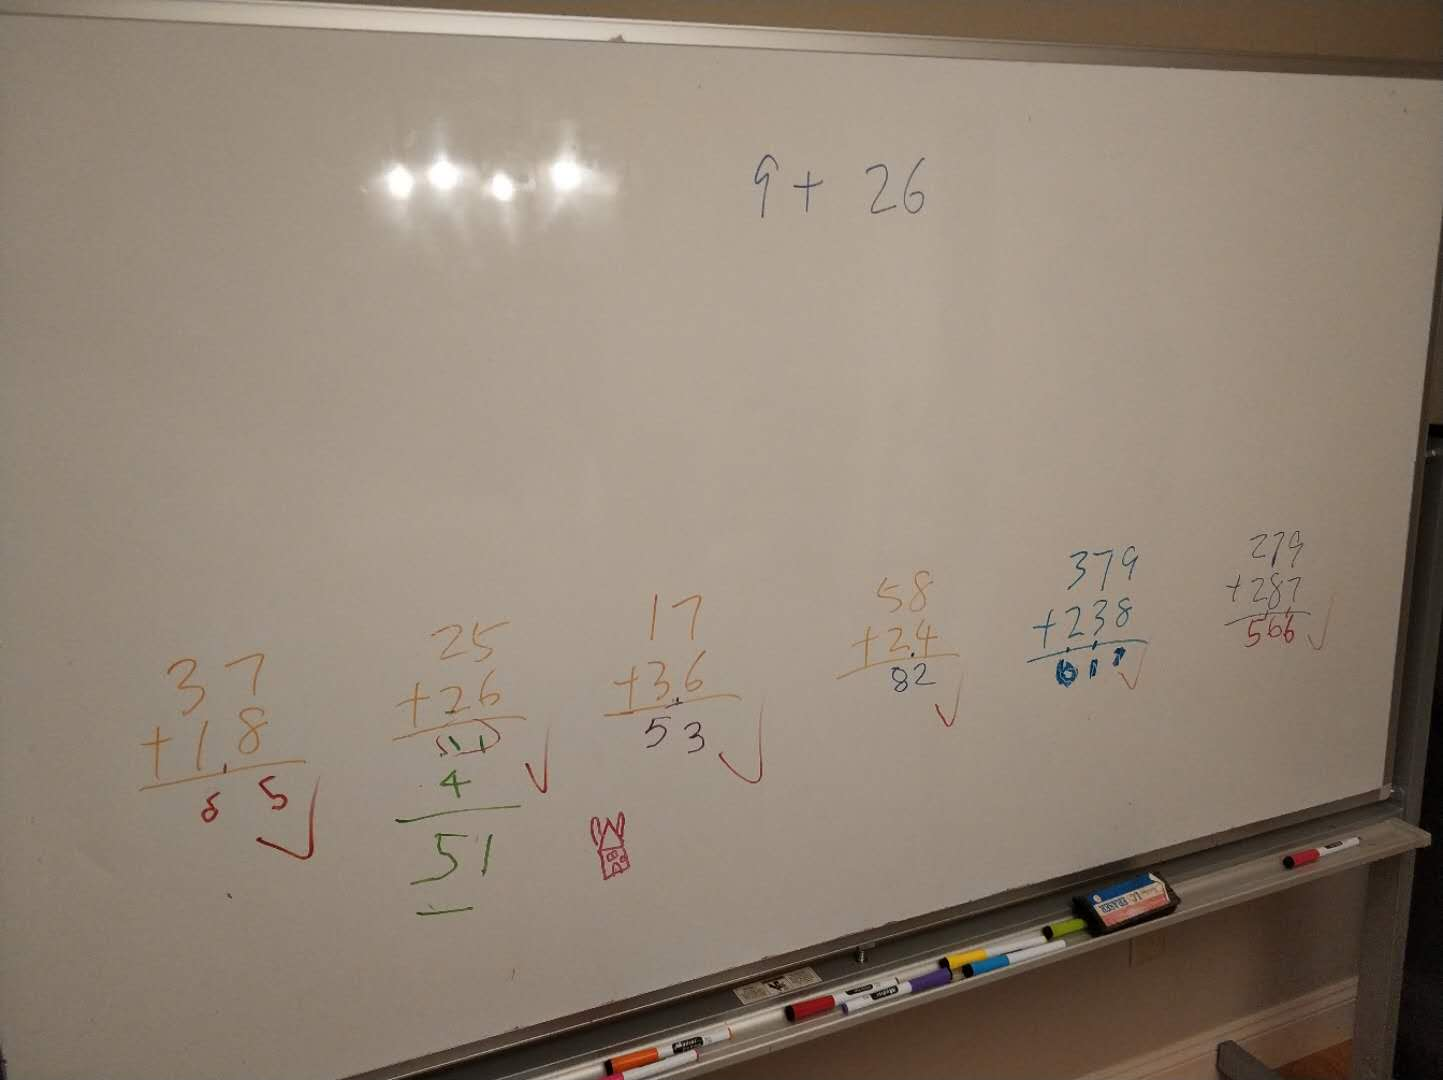 9 + 26
37
+18
5
25
+26
11
4
51
17
+36
53
58
+24
82
379
+238
617
279
+287
566
ERASER